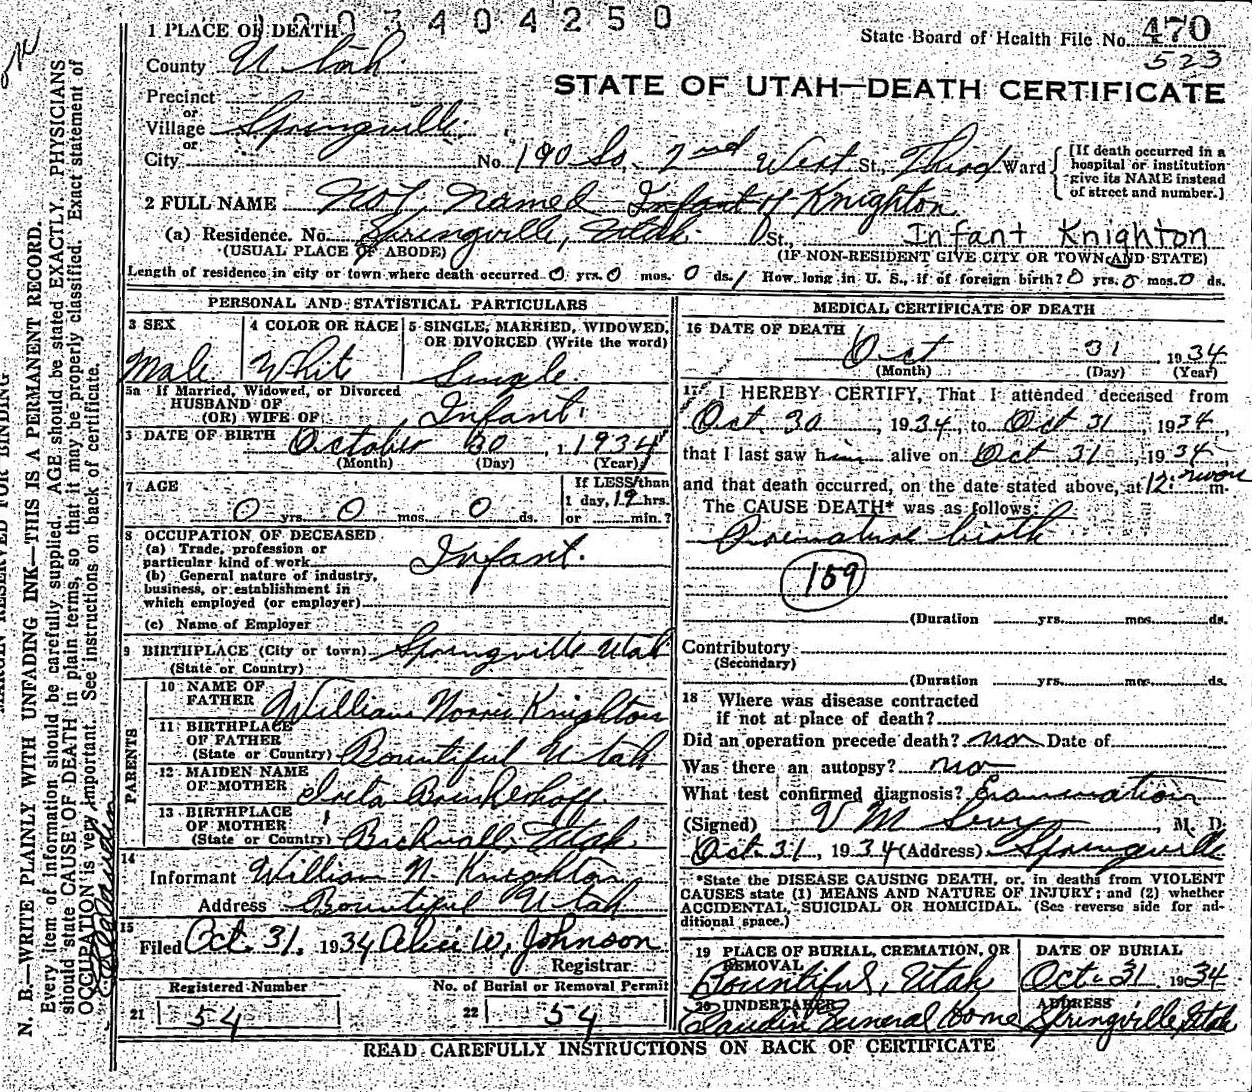 1003404250
State Board of Health File No. 470
523
1 PLACE OF DEATH
County Utah
STATE OF UTAH—DEATH CERTIFICATE
Precinct
or
Village Springville
or
City No. 190 So. 2nd West St., Third Ward
[If death occurred in a hospital or institution give its NAME instead of street and number.]
2 FULL NAME Not Named Infant of Knighton
(a) Residence. No. Springville, Utah. St., Infant Knighton
(USUAL PLACE OF ABODE) (IF NON-RESIDENT GIVE CITY OR TOWN AND STATE)
Length of residence in city or town where death occurred 0 yrs. 0 mos. 0 ds. 1 How long in U. S., if of foreign birth? 0 yrs. 0 mos. 0 ds.
PERSONAL AND STATISTICAL PARTICULARS
3 SEX
Male
4 COLOR OR RACE
White
5 SINGLE, MARRIED, WIDOWED, OR DIVORCED (Write the word)
Single
5a If Married, Widowed, or Divorced
HUSBAND OF
(OR) WIFE OF Infant.
DATE OF BIRTH October 30, 1934
(Month) (Day) (Year)
7 AGE
0 yrs. 0 mos. 0 ds.
If LESS than
1 day, 19 hrs.
or min.?
8 OCCUPATION OF DECEASED
(a) Trade, profession or
particular kind of work Infant.
(b) General nature of industry,
business, or establishment in
which employed (or employer)
(c) Name of Employer
9 BIRTHPLACE (City or town) Springville Utah
(State or Country)
PARENTS
10 NAME OF
FATHER William Norris Knighton
11 BIRTHPLACE
OF FATHER
(State or Country) Bountiful Utah
12 MAIDEN NAME
OF MOTHER Brinkerhoff
13 BIRTHPLACE
OF MOTHER
(State or Country) Bicknell, Utah
14
Informant William N. Knighton
Address Bountiful Utah
15
Filed Oct. 31. 1934 Alice W. Johnson
Registrar.
Registered Number No. of Burial or Removal Permit
21 54 22 54
MEDICAL CERTIFICATE OF DEATH
16 DATE OF DEATH
Oct 31 1934
(Month) (Day) (Year)
17 I HEREBY CERTIFY, That I attended deceased from
Oct 30, 1934, to Oct 31, 1934,
that I last saw him alive on Oct 31, 1934
and that death occurred, on the date stated above, at 12: noon m.
The CAUSE DEATH* was as follows:
Premature birth
159
(Duration yrs. mos. ds.
Contributory
(Secondary)
(Duration yrs. mos. ds.
18 Where was disease contracted
if not at place of death?
Did an operation precede death? no Date of
Was there an autopsy? no
What test confirmed diagnosis? Examination
(Signed) V M, M. D.
Oct. 31, 1934 (Address) Springville
*State the DISEASE CAUSING DEATH, or, in deaths from VIOLENT
CAUSES state (1) MEANS AND NATURE OF INJURY; and (2) whether
ACCIDENTAL, SUICIDAL OR HOMICIDAL. (See reverse side for ad-
ditional space.)
19 PLACE OF BURIAL, CREMATION, OR
REMOVAL
Bountiful, Utah
DATE OF BURIAL
Oct. 31 1934
20 UNDERTAKER
Claudin Funeral Home
ADDRESS
Springville, Utah
READ CAREFULLY INSTRUCTIONS ON BACK OF CERTIFICATE
MARGIN RESERVED FOR BINDING
N. B.—WRITE PLAINLY WITH UNFADING INK—THIS IS A PERMANENT RECORD.
Every item of information should be carefully supplied. AGE should be stated EXACTLY. PHYSICIANS
should state CAUSE OF DEATH in plain terms, so that it may be properly classified. Exact statement of
OCCUPATION is very important. See instructions on back of certificate.
Claudin